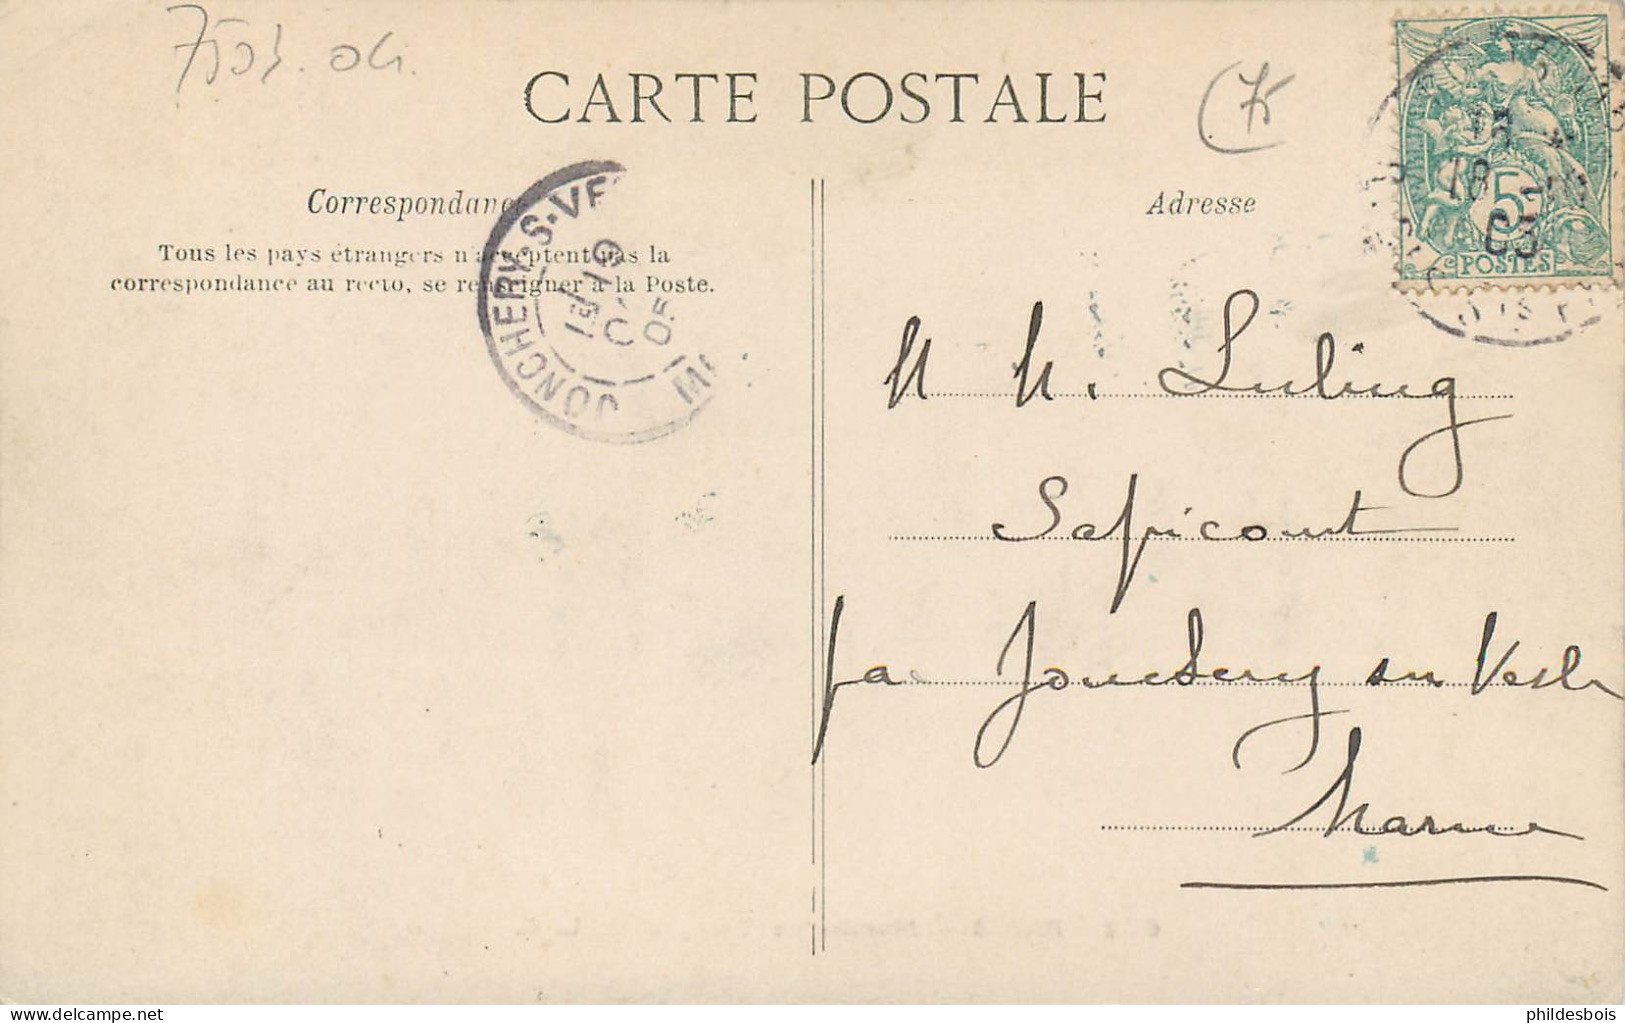 7503.04.
CARTE POSTALE
(75
Correspondance
Adresse
Tous les pays étrangers n'acceptent pas la
correspondance au recto, se renseigner à la Poste.
JONCHERY-S-VE
19
05
MA
18
05
5
POSTES
M M. Luling
Sapicourt
par Jonchery sur Vesle
Marne
delcampe.net
phildesbois